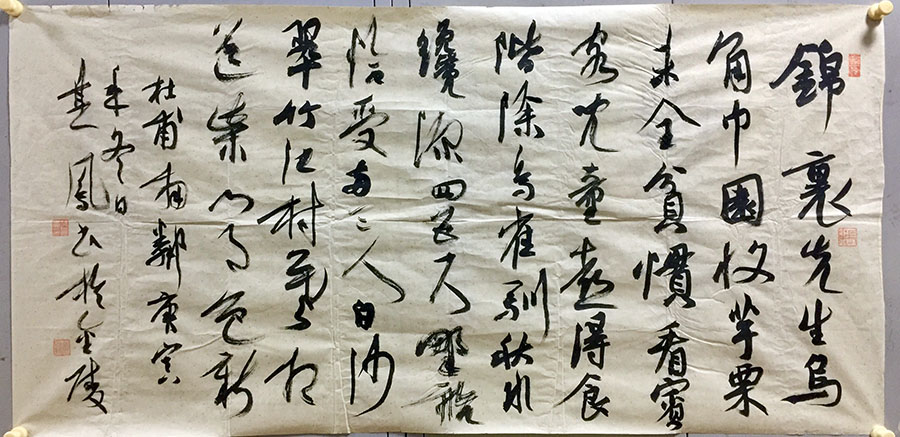 錦裏先生烏
角巾園收芋栗
未全貧慣看賓
客兒童喜得食
階除鳥雀馴秋水
纔深四五尺野航
恰受兩三人白沙
翠竹江村暮相
送柴門月色新
杜甫南鄰庚寅
年冬日
鳳書於金陵